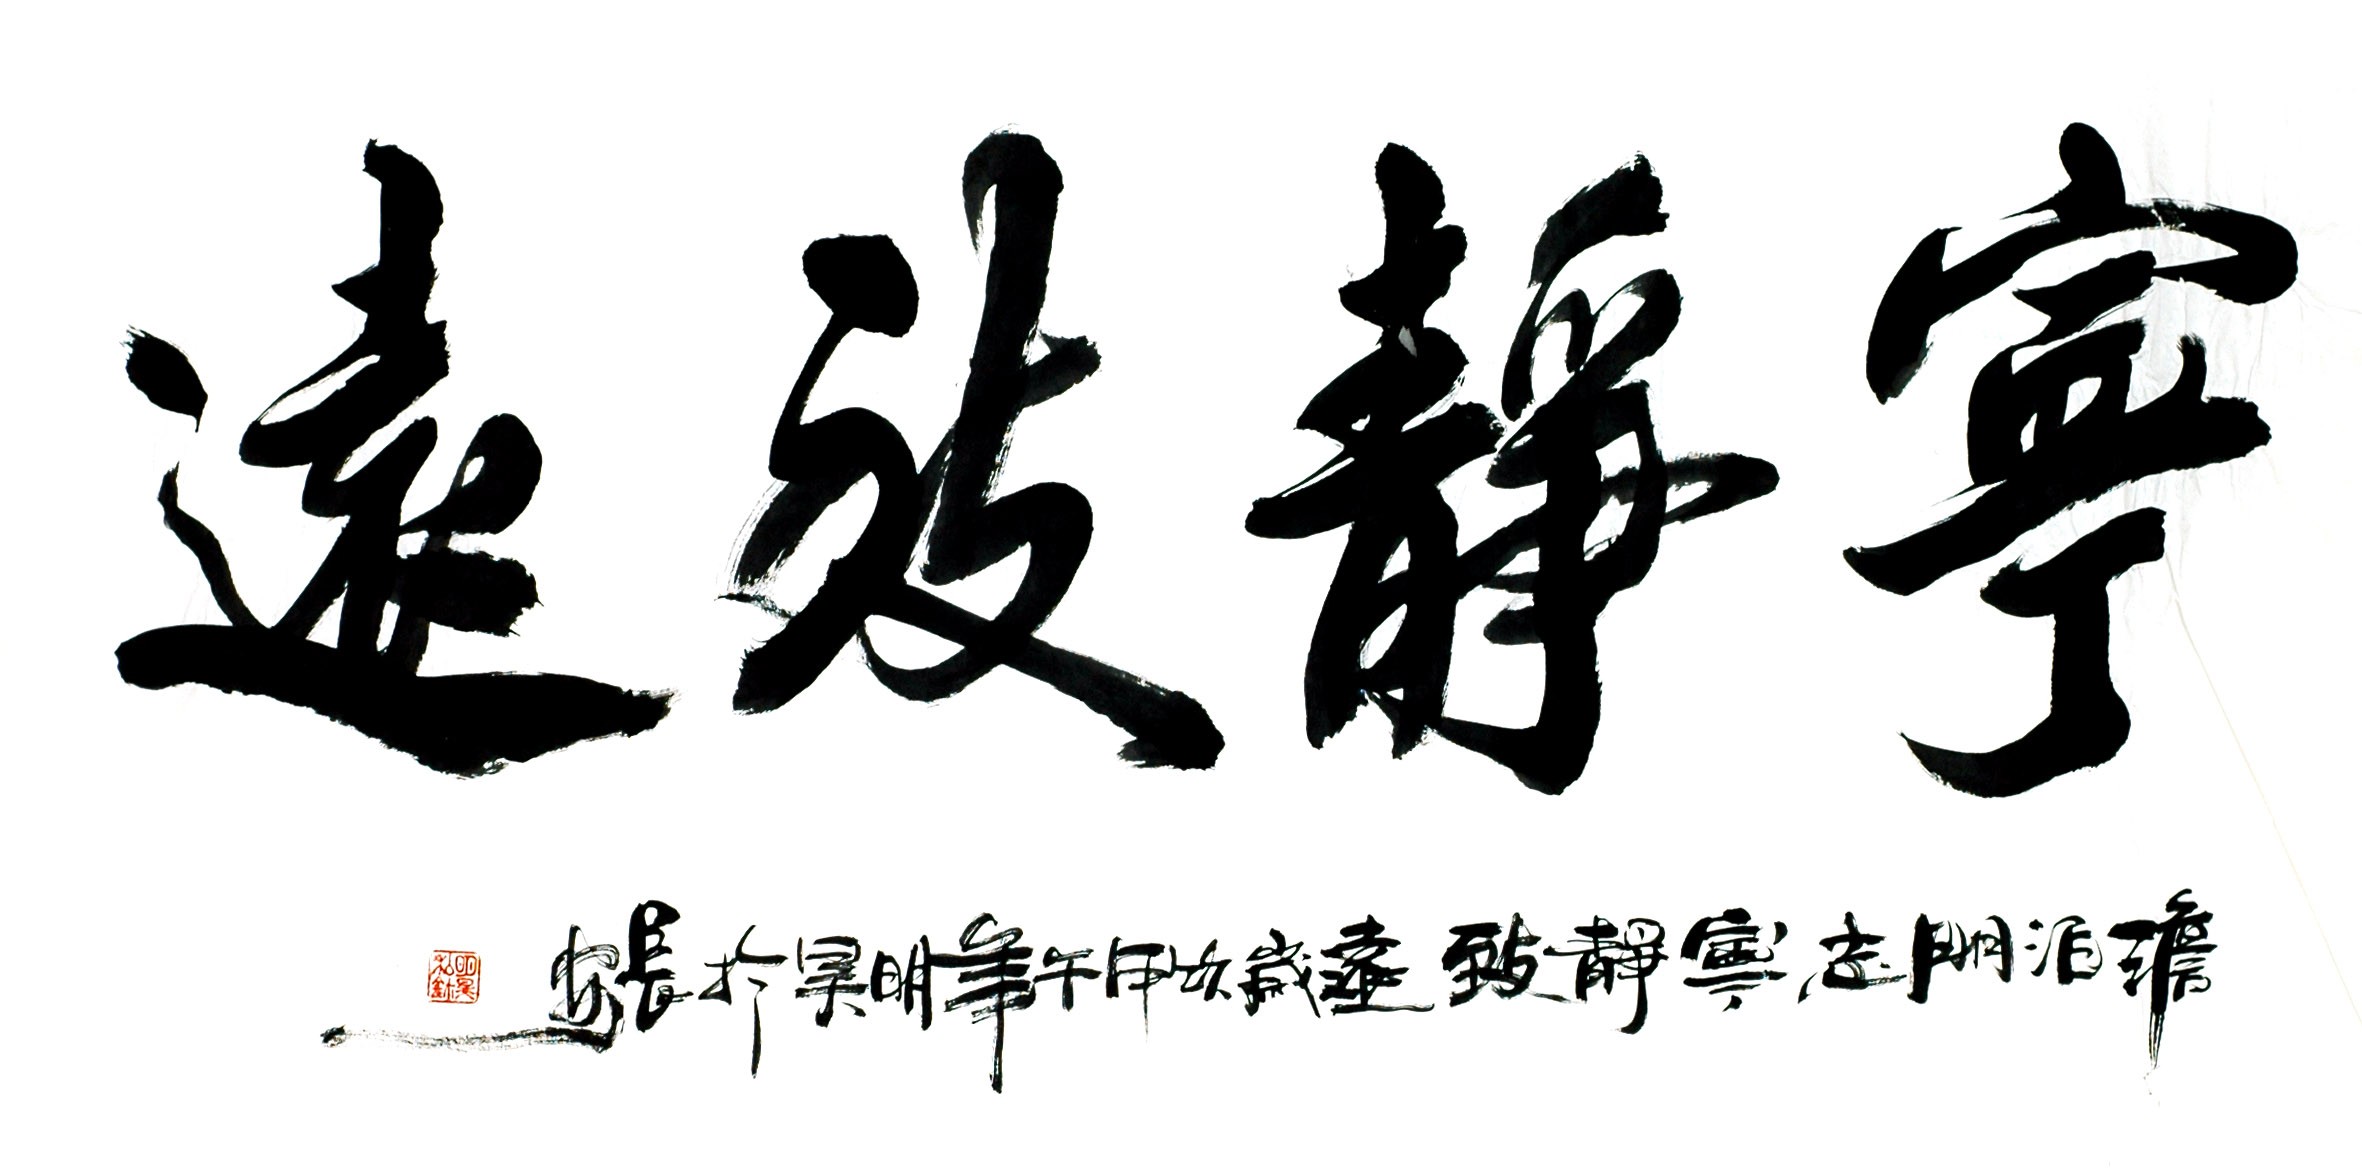 寧靜致遠
澹泊明志寧靜致遠歲次甲午年明昊於長安